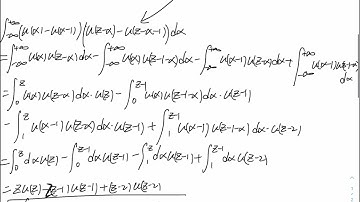 ∫_{-∞}^{+∞} (u(x) - u(x-1)) (u(z-x) - u(z-x-1)) dx
= ∫_{-∞}^{+∞} u(x) u(z-x) dx - ∫_{-∞}^{+∞} u(x) u(z-1-x) dx - ∫_{-∞}^{+∞} u(x-1) u(z-x) dx + ∫_{-∞}^{+∞} u(x-1) u(z-1-x) dx
= ∫_0^z u(x) u(z-x) dx · u(z) - ∫_0^{z-1} u(x) u(z-1-x) dx · u(z-1)
- ∫_1^z u(x-1) u(z-x) dx · u(z-1) + ∫_1^{z-1} u(x-1) u(z-1-x) dx · u(z-2)
= ∫_0^z dx u(z) - ∫_0^{z-1} dx u(z-1) - ∫_1^z dx u(z-1) + ∫_1^{z-1} dx u(z-2)
= z u(z) - 2(z-1) u(z-1) + (z-2) u(z-2)